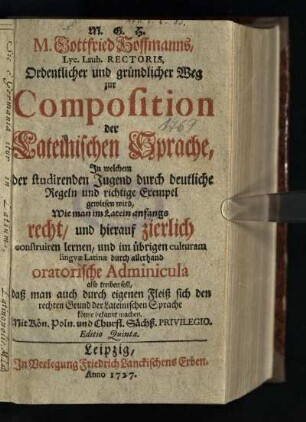 M. G. H.
M. Gottfried Hoffmanns,
Lyc. Laub. RECTORIS,
Ordentlicher und gründlicher Weg
zur
Composition
der
Lateinischen Sprache,
In welchem
der studirenden Jugend durch deutliche
Regeln und richtige Exempel
gewiesen wird,
Wie man im Latein anfangs
recht/ und hierauf zierlich
construiren lernen, und im übrigen culturam
linguæ Latinæ durch allerhand
oratorische Adminicula
also treiben soll,
daß man auch durch eigenen Fleiß sich den
rechten Grund der Lateinischen Sprache
könne bekannt machen.
Mit Kön. Poln. und Churfl. Sächß. PRIVILEGIO.
Editio Quinta.
Leipzig,
In Verlegung Friedrich Lanckischens Erben.
Anno 1727.